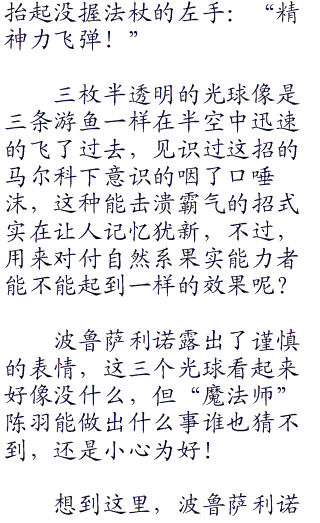 抬起没握法杖的左手：“精
神力飞弹！”
三枚半透明的光球像是
三条游鱼一样在半空中迅速
的飞了过去，见识过这招的
马尔科下意识的咽了口唾
沫，这种能击溃霸气的招式
实在让人记忆犹新，不过，
用来对付自然系果实能力者
能不能起到一样的效果呢？
波鲁萨利诺露出了谨慎
的表情，这三个光球看起来
好像没什么，但“魔法师”
陈羽能做出什么事谁也猜不
到，还是小心为好！
想到这里，波鲁萨利诺